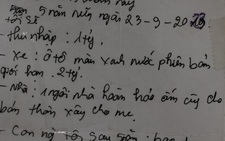 5 năm nữa ngày 23-9-20
tôi sẽ
- thu nhập: 1 tỷ.
- xe: ô tô màu xanh nước phiên bản
giới hạn. 2 tỷ.
- Nhà: 1 ngôi nhà hoàn hảo ấm cúng do
bản thân xây cho mẹ.